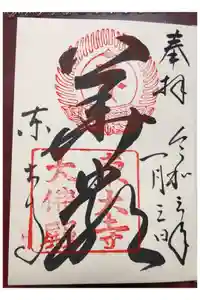 奉拝
令和三年
一月三日
華厳
東大寺
東大寺
大佛殿